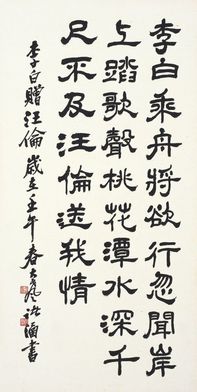 李白乘舟將欲行忽聞岸
上踏歌聲桃花潭水深千
尺不及汪倫送我情
李白贈汪倫 歲在壬午春 書